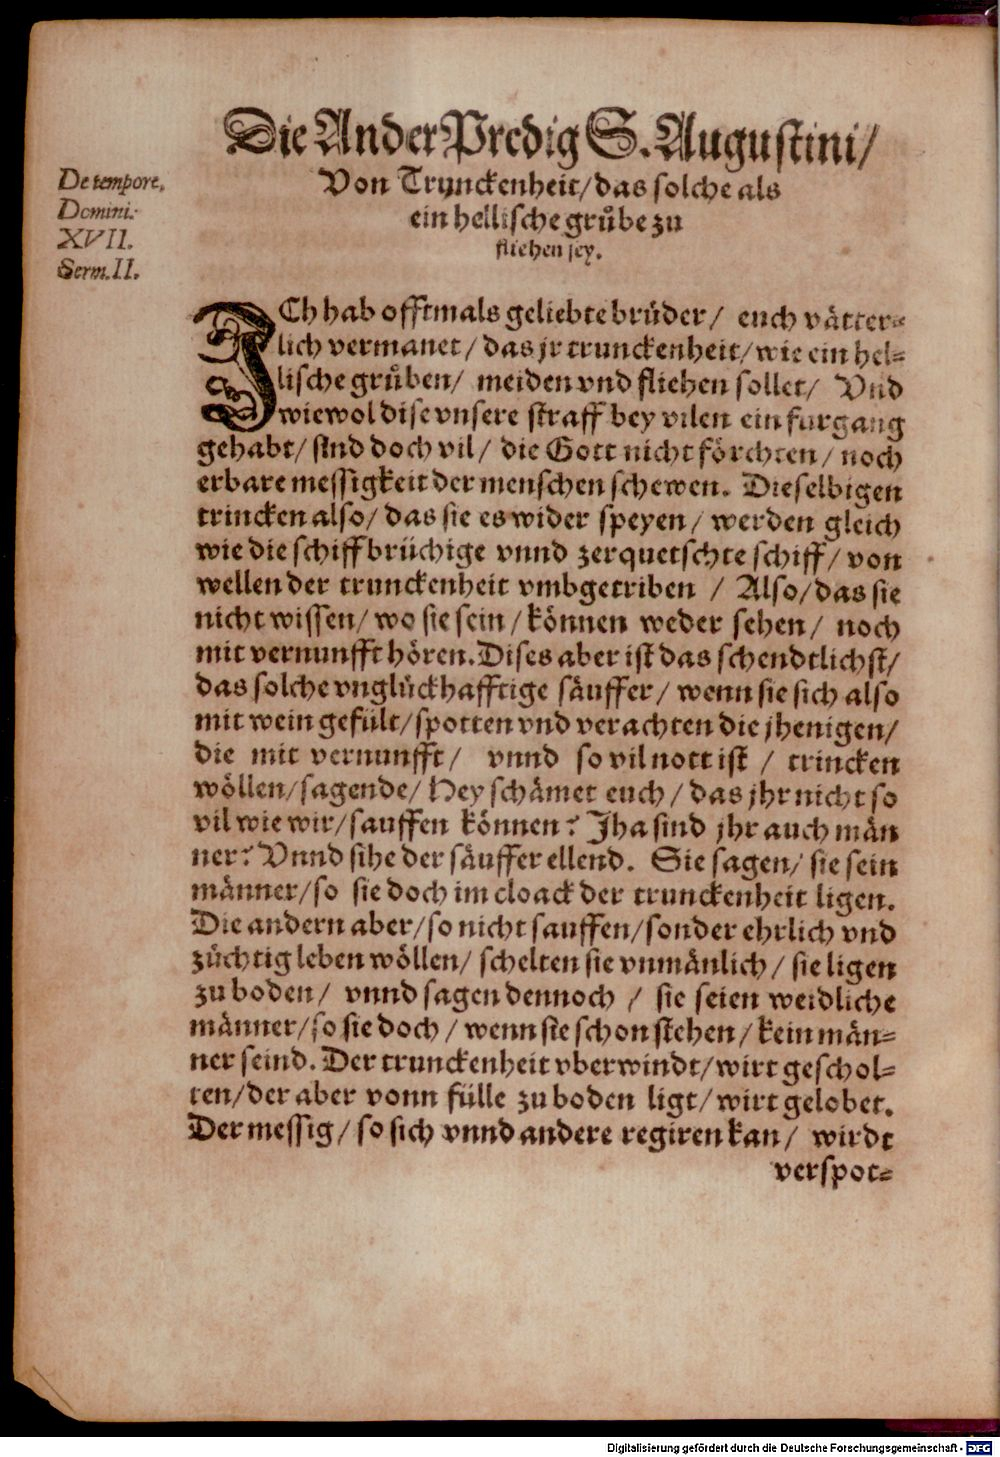 Die Ander Predig S. Augustini/
Von Trunckenheit/das solche als
ein hellische grůbe zu
fliehen sey.
De tempore,
Domini.
XVII.
Serm. II.
ICh hab offtmals geliebte brüder/ euch vätter-
lich vermanet/das jr trunckenheit/wie ein hel-
lische grůben/ meiden vnd fliehen sollet/ Vnd
wiewol dise vnsere straff bey vilen ein furgang
gehabt/sind doch vil/ die Gott nicht förchten/ noch
erbare messigkeit der menschen schewen. Dieselbigen
trincken also/das sie es wider speyen/ werden gleich
wie die schiffbrüchige vnnd zerquetschte schiff/ von
wellen der trunckenheit vmbgetriben / Also/das sie
nicht wissen/wo sie sein/können weder sehen/ noch
mit vernunfft hören. Dises aber ist das schendtlichst/
das solche vnglückhafftige säuffer/ wenn sie sich also
mit wein gefült/spotten vnd verachten die jhenigen/
die mit vernunfft/ vnnd so vil nott ist / trincken
wöllen/sagende/ Hey schämet euch/das jhr nicht so
vil wie wir/sauffen können? Jha sind jhr auch män
ner? Vnnd sihe der säuffer ellend. Sie sagen/ sie sein
männer/so sie doch im cloack der trunckenheit ligen.
Die andern aber/so nicht sauffen/sonder ehrlich vnd
züchtig leben wöllen/ schelten sie vnmänlich/sie ligen
zu boden/ vnnd sagen dennoch / sie seien weidliche
männer/so sie doch/wenn sie schon stehen/kein män-
ner seind. Der trunckenheit vberwindt/wirt geschol-
ten/der aber vonn fülle zu boden ligt/wirt gelobet.
Der messig/so sich vnnd andere regiren kan/ wirdt
verspot-
Digitalisierung gefördert durch die Deutsche Forschungsgemeinschaft - DFG